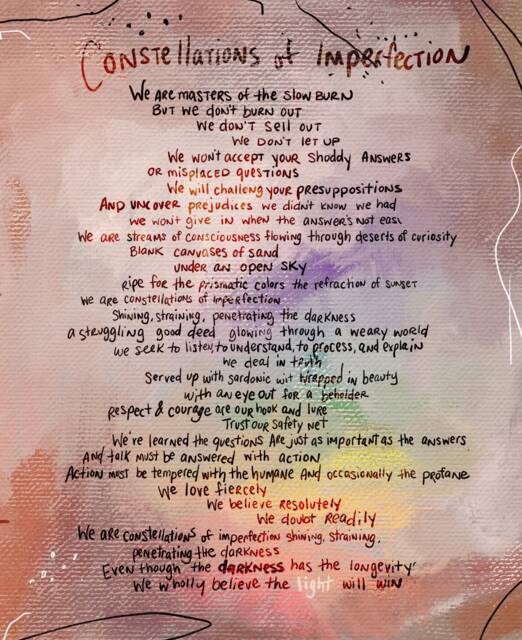 Constellations of Imperfection
We are masters of the slow burn
But we don't burn out
We don't sell out
We don't let up
We won't accept your shoddy answers
or misplaced questions
We will challeng your presuppositions
And uncover prejudices we didn't know we had
we won't give in when the answer's not easy
We are streams of consciousness flowing through deserts of curiosity
Blank canvases of sand
under an open sky
ripe for the prismatic colors the refraction of sunset
We are constellations of imperfection
Shining, straining, penetrating the darkness
a struggling good deed glowing through a weary world
we seek to listen, to understand, to process, and explain
We deal in truth
Served up with sardonic wit wrapped in beauty
with an eye out for a beholder
respect & courage are our hook and lure
Trust our safety net
We've learned the questions are just as important as the answers
And talk must be answered with action
Action must be tempered with the humane and occasionally the profane
We love fiercely
We believe resolutely
We doubt readily
We are constellations of imperfection shining, straining,
penetrating the darkness
Even though the darkness has the longevity
We wholly believe the light will win